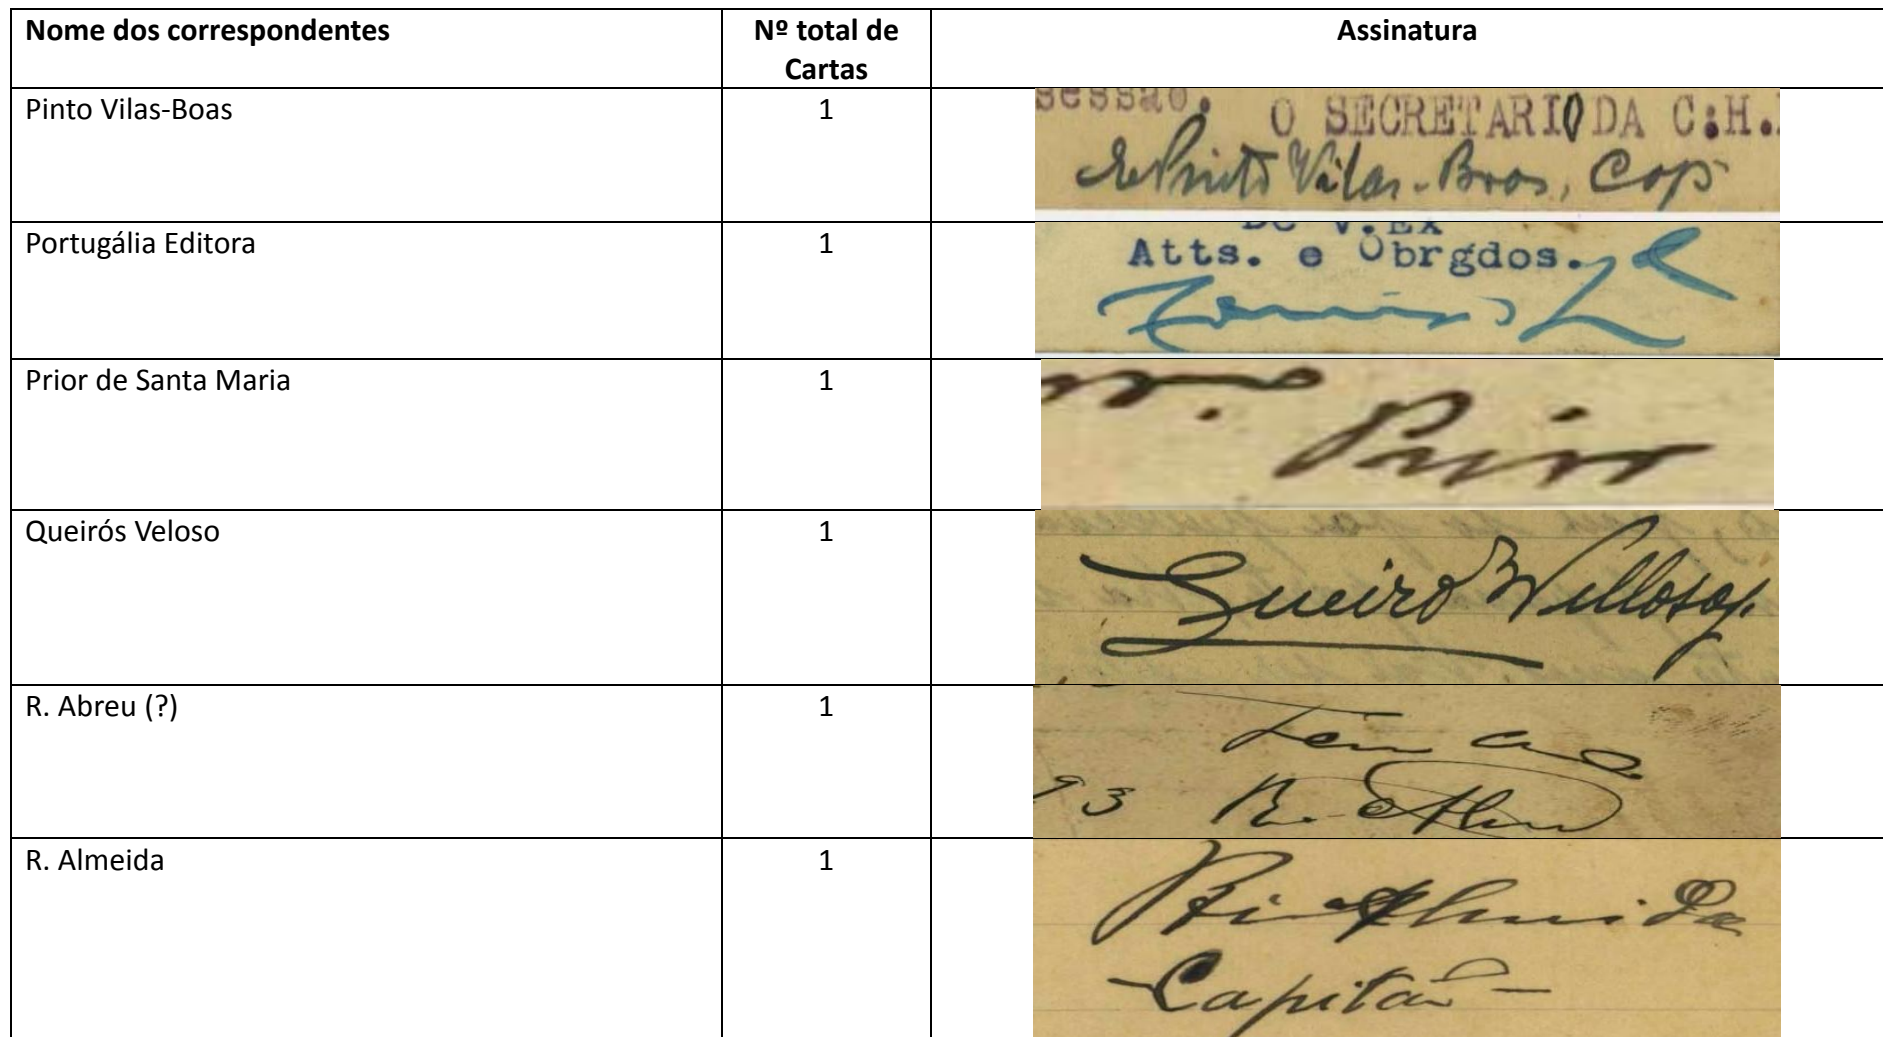 Nome dos correspondentes
Nº total de
Cartas
Assinatura
Pinto Vilas-Boas
1
sessão. O SECRETARIO DA C:H.
Pinto Vilas-Boas, Cap
Portugália Editora
1
De V.EX
Atts. e Obrgdos.
Prior de Santa Maria
1
Prior
Queirós Veloso
1
Queiro Velloso
R. Abreu (?)
1
93 R.
R. Almeida
1
Almeida
Capitão